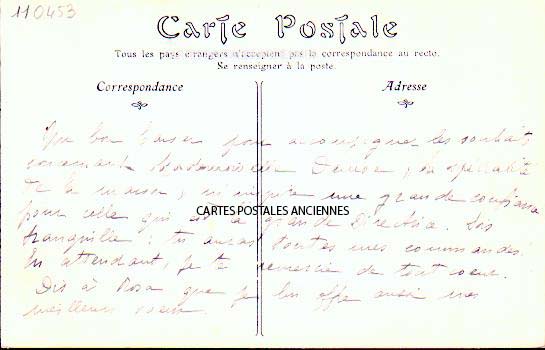 110453
Carte Postale
Tous les pays étrangers n'acceptent pas la correspondance au recto.
Se renseigner à la poste.
Correspondance
Adresse
Un bon baiser pour accompagner les souhaits
concernant Mademoiselle Denise, la spécialité
de la maison, m'inspire une grande confiance
pour celle qui a la grande Direction. Sois
tranquille; tu auras toutes mes commandes.
En attendant, je te remercie de tout coeur.
Dis à Rosa que je lui offre aussi mes
meilleurs voeux.
CARTES POSTALES ANCIENNES